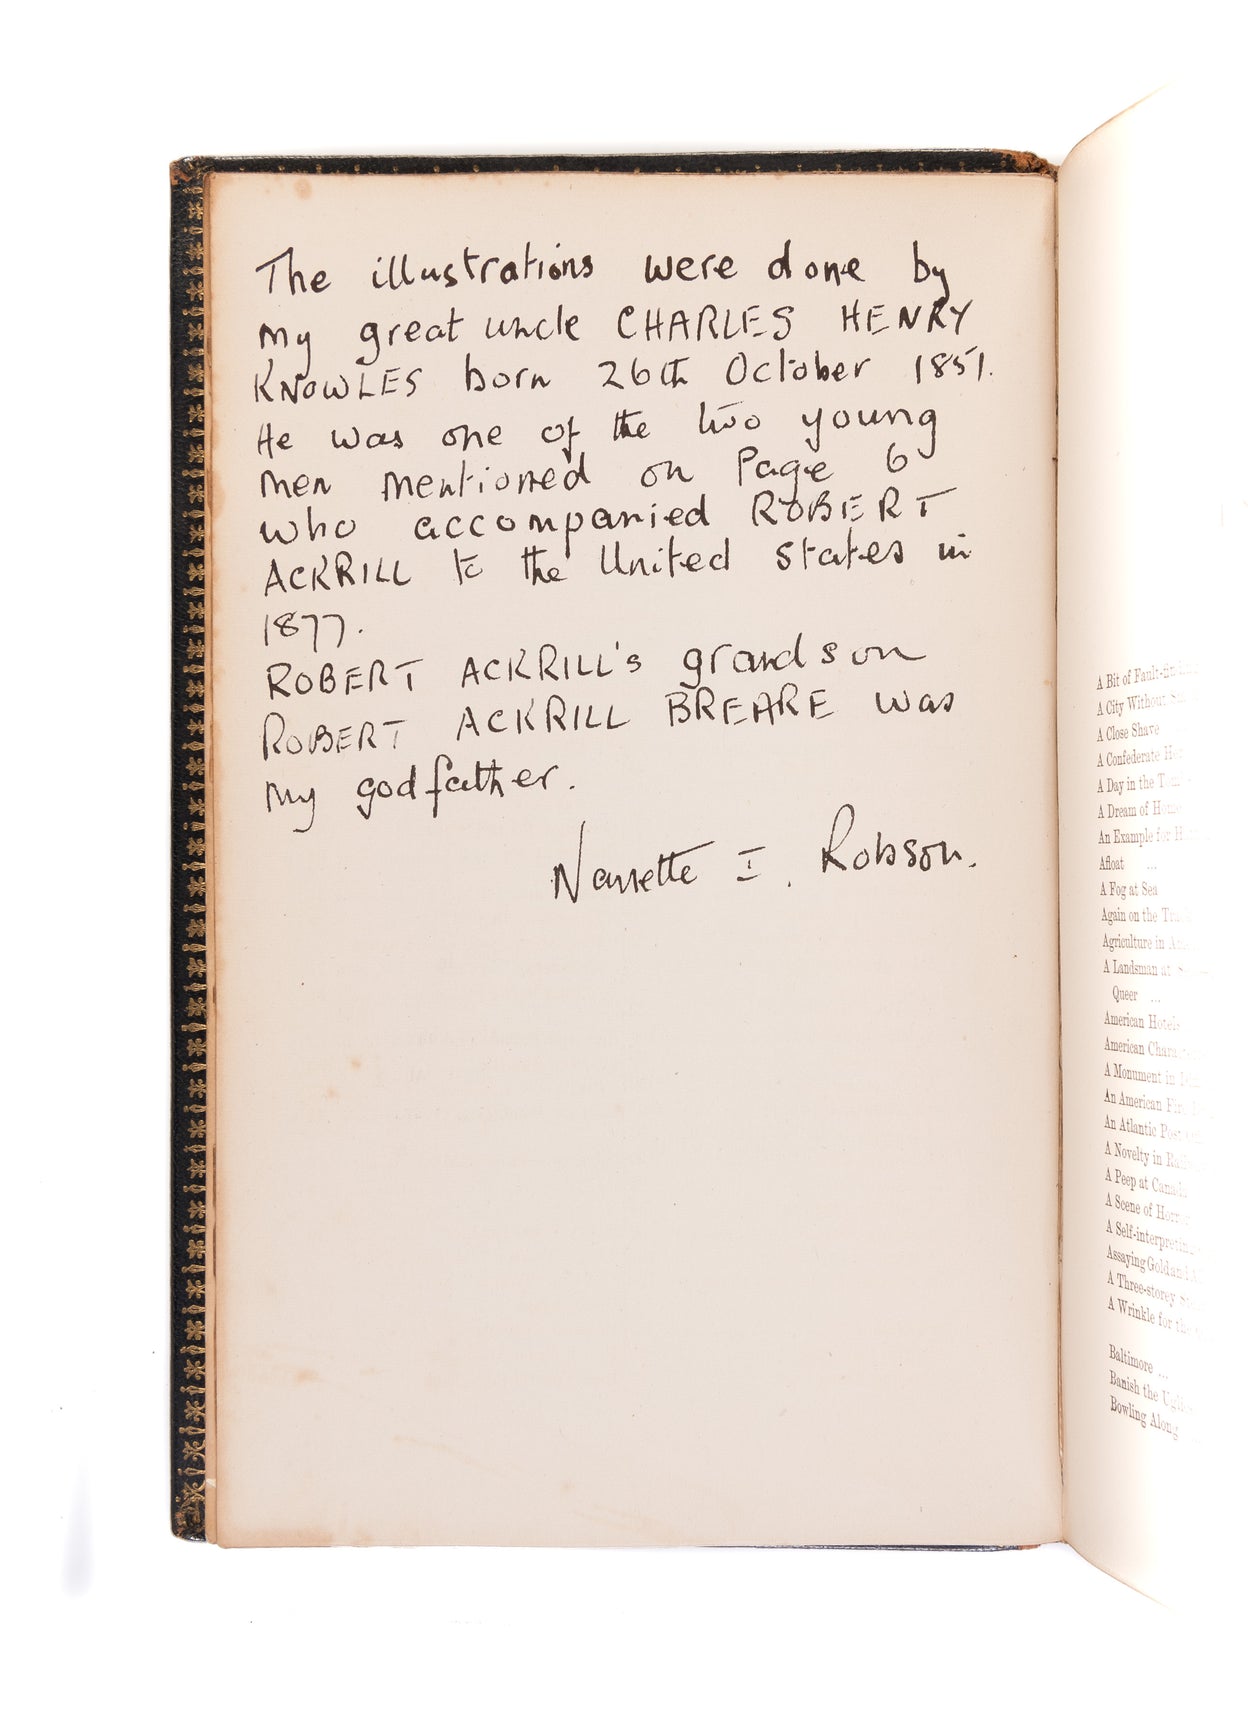 The illustrations were done by
my great uncle CHARLES HENRY
KNOWLES born 26th October 1851.
He was one of the two young
men mentioned on Page 6
who accompanied ROBERT
ACKRILL to the United States in
1877.
ROBERT ACKRILL's grandson
ROBERT ACKRILL BREARE was
my godfather.
Nanette I. Robson.
A Bit of
A City Without
A Close Shave
A Confederate
A Day in the
A Dream of
An Example for
Afloat ...
A Fog at Sea
Again on the
Agriculture in
A Landsman at
Queer ...
American Hotels
American
A Monument in
An American
An Atlantic
A Novelty in
A Peep at
A Scene of
A Self-interpreting
Assaying Gold and
A Three-storey
A Wrinkle for the
Baltimore ...
Banish the
Bowling Along